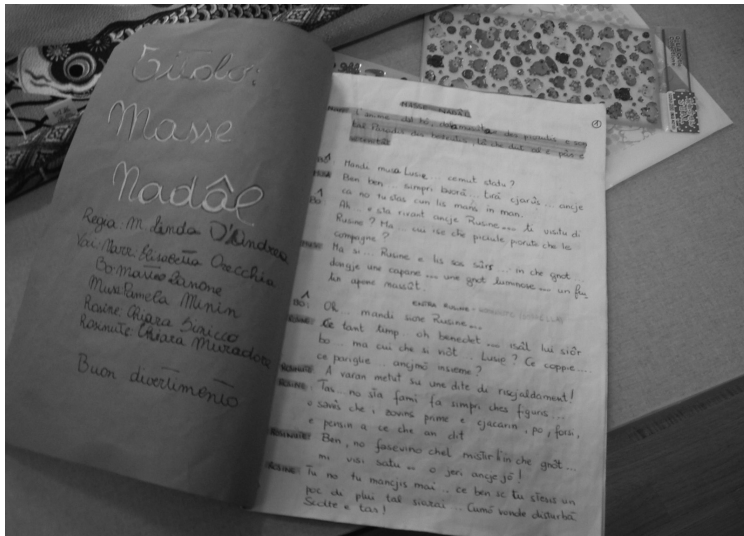 Titolo:
Masse
Nadâl
Regia: M. Linda D'Andrea
Voci: Marri: Elisabetta Orecchia
Bo: Marco Zanone
Muse: Pamela Minin
Rosine: Chiara Siricco
Rosinute: Chiara Muradore
Buon divertimento
MASSE NADÂL
1
tal Paradis des bestiis, là che dut al è pâs e
serenitât
BÒ Mandi musa Lusie... comut statu?
MUSE Ben ben... simpri lavorâ... tirâ cjarûs... ancje
ca no tu stâs cun lis mans in man.
BÒ Ah... e sta rivant ancje Rusine... ti visitu di
Rusine? Ma... cui ise che piciule parute che la
compagne?
MUSE Ma sì... Rusine e lis sos sûrs... in che gnot...
dongje une capane... une gnot luminose... un frut
lin apene nassût.
ENTRA RUSINE
BÒ Oh... mandi siore Rusine...
RUSINE Ce tant timp... oh benedet... isal lui siôr
bo... ma cui che si viôt... Lusie? Ce coppie...
ce pariglie... ancjmò insieme?
ROSINUTE A varan metût su une dite di riscjaldament!
RUSINE Tas... no sta fami fâ simpri ches figuris...
o savês che i zovins prime e cjacarin, po, forsi,
e pensin a ce che an dit
ROSINUTE Ben, no fasevino chel mistîr lì in che gnot...
mi visi satu... o jeri ancje jò!
RUSINE Tu no tu mangjis mai... ce ben se tu stevis un
poc di plui tal siarai... Cumò vonde disturbâ
Sidite e tas!